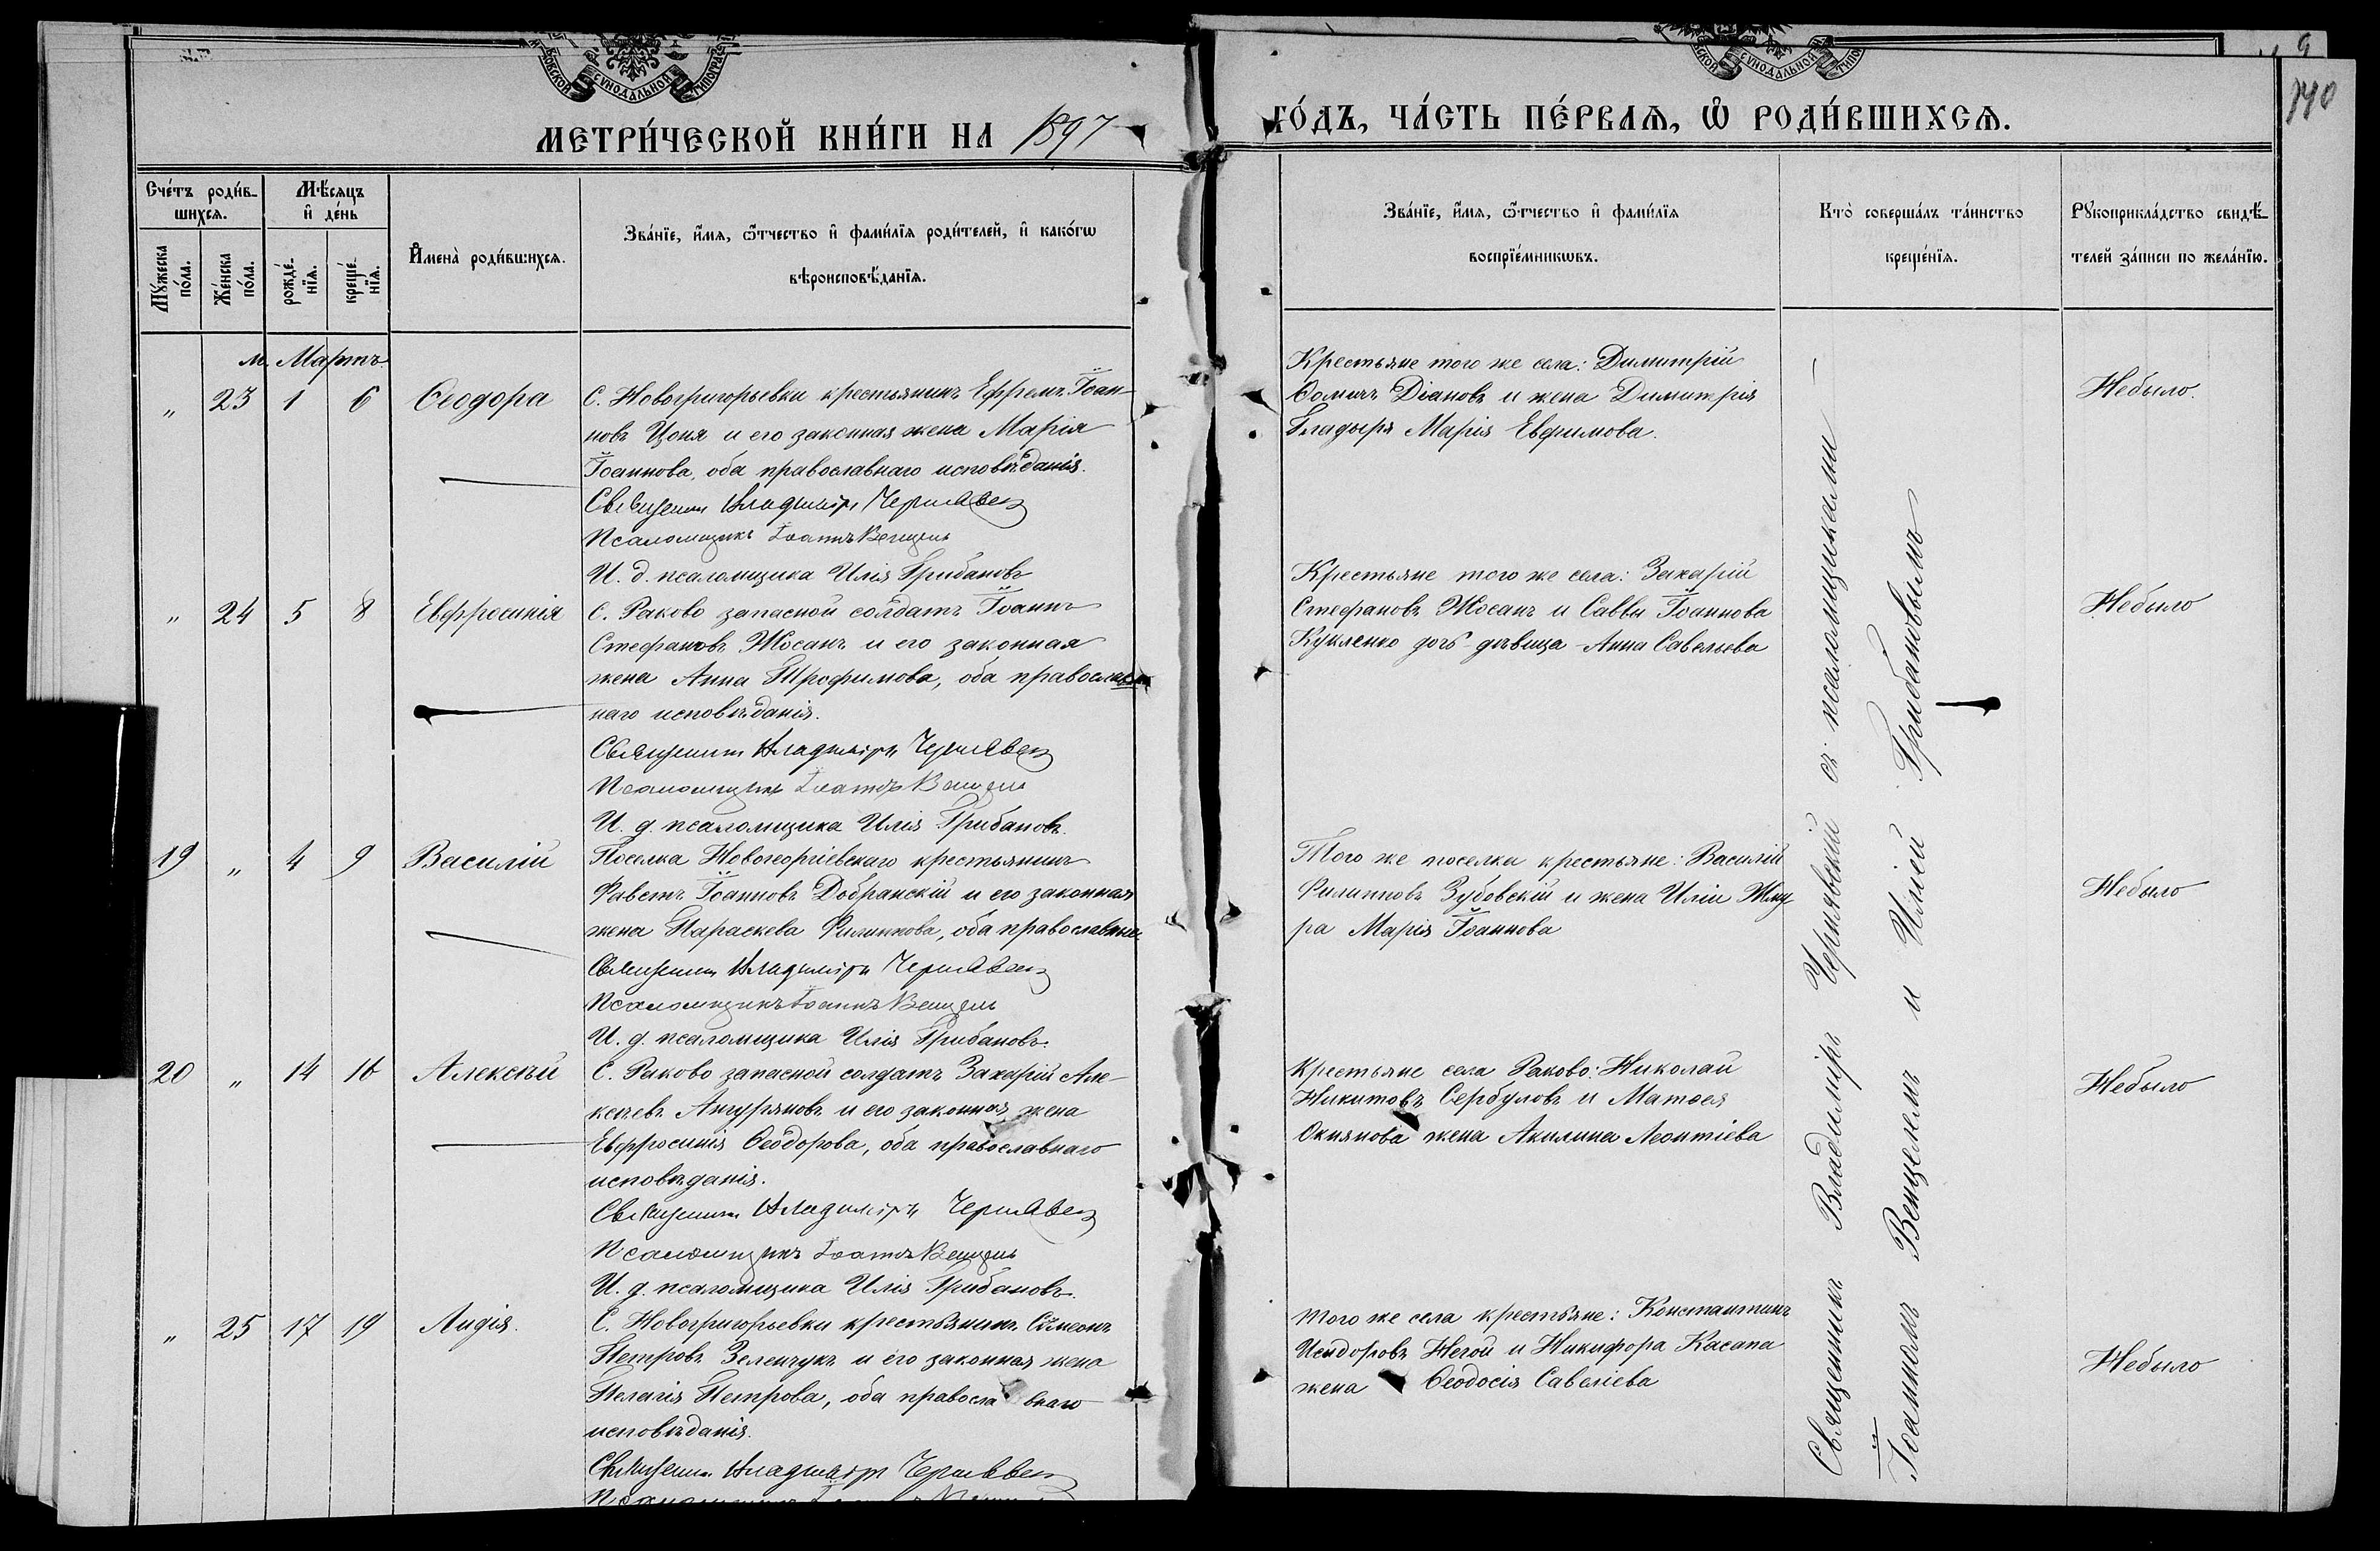 МЕТРИ́ЧЕСКОЙ КНИ́ГИ НА 1897
ГО́ДЪ, ЧА́СТЬ ПЕ́РВАѦ, Ѡ РОДИ́ВШИХСѦ.
140
Сче́тъ роди́в-
шихсѧ.
Мꙋ́жеска по́ла.
Же́нска по́ла.
Мѣ́сѧцъ
и҆ де́нь
рожде́-нїѧ.
креще́-нїѧ.
И҆мена̀ роди́вшихсѧ.
Зва́нїе, и҆́мѧ, ѻ҆́тчество и҆ фами́лїѧ роди́телей, и҆ како́гѡ
вѣроисповѣ́данїѧ.
Зва́нїе, и҆́мѧ, ѻ҆́тчество и҆ фами́лїѧ
воспрїе́мникѡвъ.
Кто̀ соверша́лъ та́инство
креще́нїѧ.
Рꙋкоприкла́дство свидѣ́-
телей за́писи по жела́нїю.
м. Мартъ.
" 23 1 6 Ѳеодора
С. Новогригорьевки крестьянинъ Ефремъ Іоан-
новъ Цоня и его законная жена Марія
Іоаннова, оба православнаго исповѣданія.
Священникъ Владиміръ Чернявскій
Псаломщикъ Іоаннъ Венцель
И. д. псаломщика Илія Грибановъ
Крестьяне того же села: Димитрій
Ѳомичъ Діановъ и жена Димитрія
Гладыря Марія Евфимова.
Небыло.
" 24 5 8 Евфросинія
С. Раково запасной солдатъ Іоаннъ
Стефановъ Жосанъ и его законная
жена Анна Трофимова, оба православ-
наго исповѣданія.
Священникъ Владиміръ Чернявскій
Псаломщикъ Іоаннъ Венцель
И. д. псаломщика Илія Грибановъ.
Крестьяне того же села: Захарій
Стефановъ Жосанъ и Саввы Іоаннова
Кукленко дочь-дѣвица-Анна Савельева
Небыло
19 " 4 9 Василій
Поселка Новогеоргіевскаго крестьянинъ
Фавстъ Іоанновъ Добранскій и его законная
жена Параскева Филиппова, оба православные
Священникъ Владиміръ Чернявскій
Псаломщикъ Іоаннъ Венцель
И. д. псаломщика Илія Грибановъ.
Того же поселка крестьяне: Василій
Филипповъ Зубовскій и жена Иліи Жму-
ра Марія Іоаннова
Небыло
20 " 14 16 Алексѣй
С. Раково запасной солдатъ Захарій Але-
ксѣевъ Ангуряновъ и его законная жена
Евфросинія Ѳеодорова, оба православнаго
исповѣданія.
Священникъ Владиміръ Чернявскій
Псаломщикъ Іоаннъ Венцель
И. д. псаломщика Илія Грибановъ.
Крестьяне села Раково: Николай
Никитовъ Сербуловъ и Матѳея
Окиянова жена Акилина Леонтіева
Небыло
" 25 17 19 Лидія.
С. Новогригорьевки крестьянинъ Сѵмеонъ
Петровъ Зеленчукъ и его законная жена
Пелагія Петрова, оба православнаго
исповѣданія.
Священникъ Владиміръ Чернявскій
того же села крестьяне: Константинъ
Исидоровъ Негой и Никифора Касапа
жена Ѳеодосія Савеліева
Небыло
Священникъ Владиміръ Чернявскій съ псаломщиками
Іоанномъ Венцелемъ и Иліей Грибановымъ